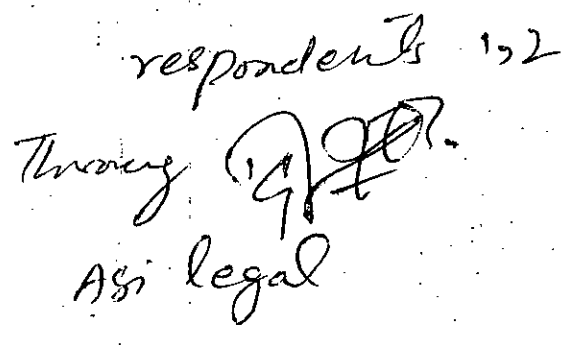 respondents 1,2
Throug
ASi legal